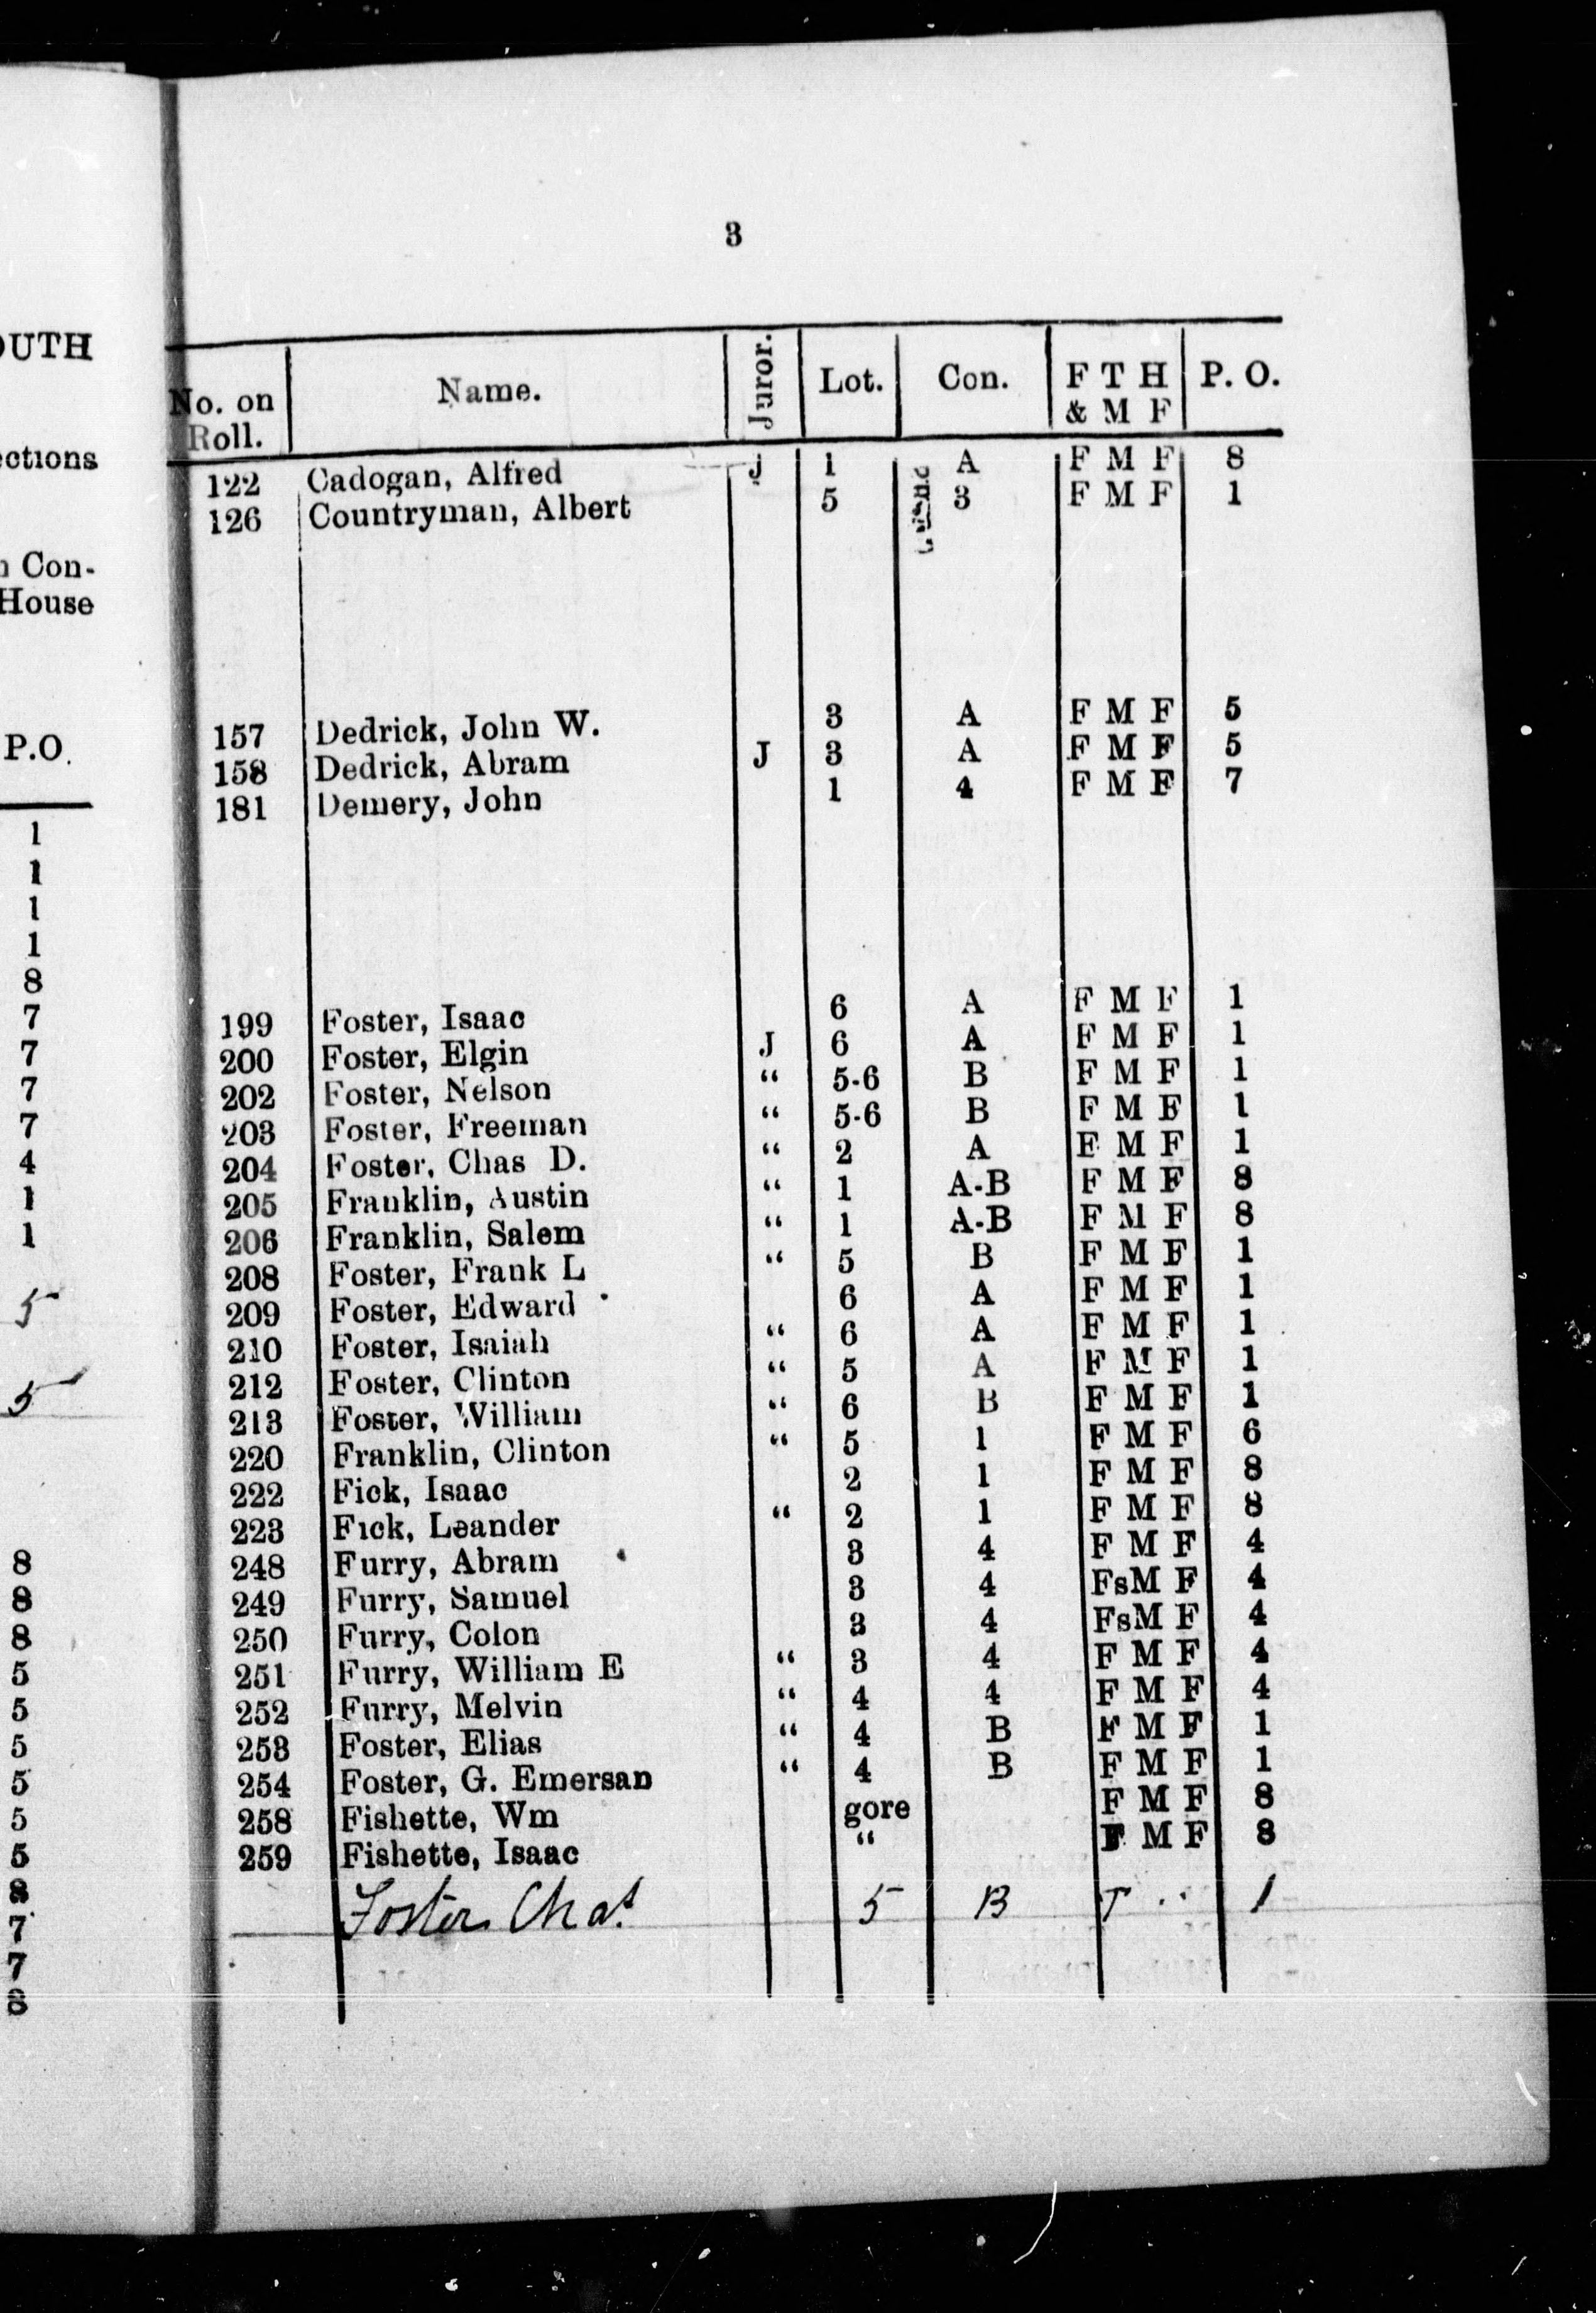 OUTH
ections
n Con-
House
P.O.
1
1
1
1
8
7
7
7
7
4
1
1
5
5
8
8
8
5
5
5
5
5
5
8
7
7
8
3
No. on Roll. Name. Juror. Lot. Con. F T H & M F P. O.
122 Cadogan, Alfred J 1 A F M F 8
126 Countryman, Albert 5 3 F M F 1
157 Dedrick, John W. 3 A F M F 5
158 Dedrick, Abram J 3 A F M F 5
181 Demery, John 1 4 F M F 7
199 Foster, Isaac 6 A F M F 1
200 Foster, Elgin J 6 A F M F 1
202 Foster, Nelson “ 5-6 B F M F 1
203 Foster, Freeman “ 5-6 B F M F 1
204 Foster, Chas D. “ 2 A F M F 1
205 Franklin, Austin “ 1 A-B F M F 8
206 Franklin, Salem “ 1 A-B F M F 8
208 Foster, Frank L “ 5 B F M F 1
209 Foster, Edward 6 A F M F 1
210 Foster, Isaiah “ 6 A F M F 1
212 Foster, Clinton “ 5 A F M F 1
213 Foster, William “ 6 B F M F 1
220 Franklin, Clinton “ 5 1 F M F 6
222 Fick, Isaac 2 1 F M F 8
223 Fick, Leander “ 2 1 F M F 8
248 Furry, Abram 3 4 F M F 4
249 Furry, Samuel 3 4 FsM F 4
250 Furry, Colon 3 4 FsM F 4
251 Furry, William E “ 3 4 F M F 4
252 Furry, Melvin “ 4 4 F M F 4
253 Foster, Elias “ 4 B F M F 1
254 Foster, G. Emersan “ 4 B F M F 1
258 Fishette, Wm gore F M F 8
259 Fishette, Isaac “ F M F 8
Foster Chas. 5 B T " 1